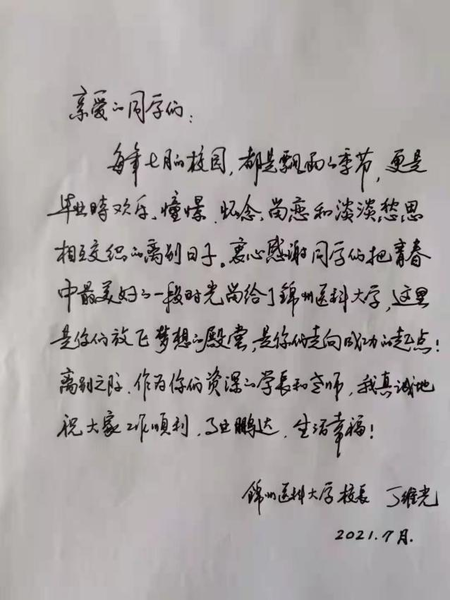 亲爱的同学们：
每年七月的校园，都是飘雨的季节，更是
毕业時欢乐、憧憬、怀念、留恋和淡淡愁思
相互交织的离别日子。衷心感谢同学们把青春
中最美好的一段时光留给了錦州医科大学，这里
是你们放飞梦想的殿堂，是你们走向成功的起点！
离别之际，作为你们的资深的学長和老师，我真诚地
祝大家工作順利，马业鹏达，生活幸福！
錦州医科大学校長 丁維光
2021.7月.